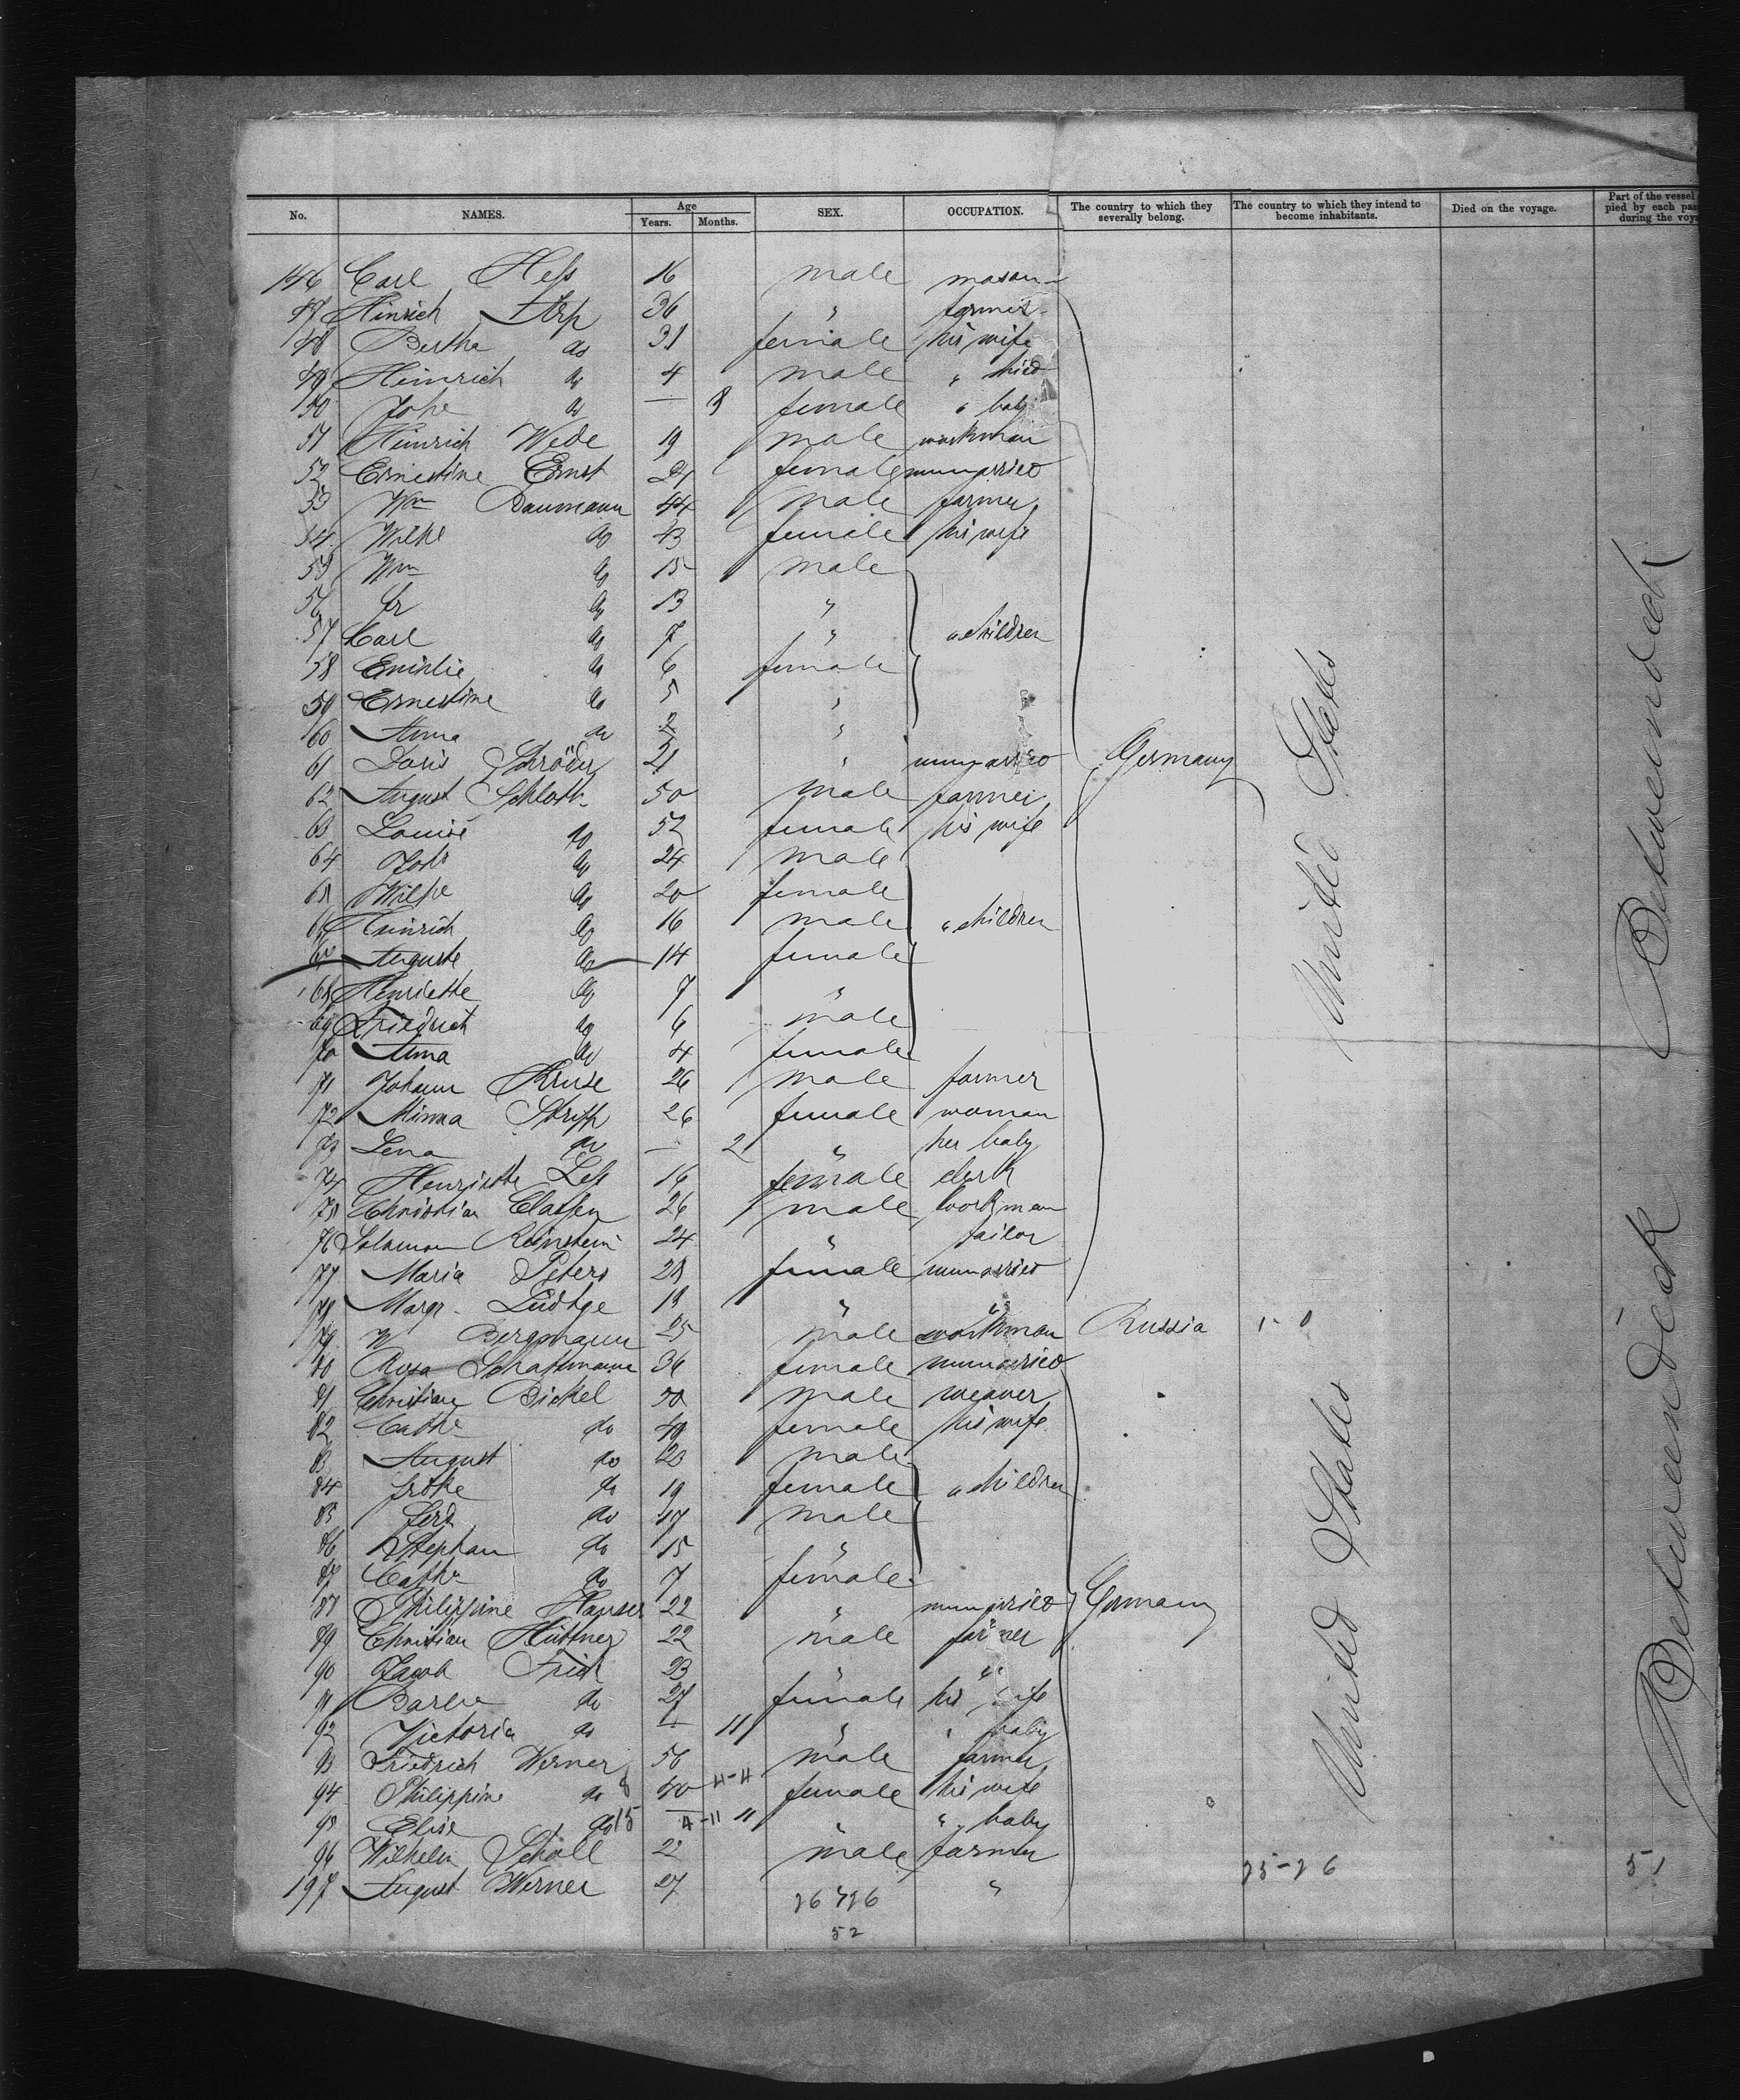 No. NAMES. Age Years. Months. SEX. OCCUPATION. The country to which they severally belong. The country to which they intend to become inhabitants. Died on the voyage. Part of the vessel pied by each pas during the voya
146 Carl Hess 16 male mason
47 Hinrich Arp 36 " farmer
48 Bertha do 31 female his wife
49 Heinrich do 4 male "
50 do — female " baby
51 Heinrich Wede 19 male workman
52 Ernestine Ernst 21 female unmarried
53 Wm Baumann 44 male farmer
54 Wilhe do 43 female his wife
55 Wm do 15 male
56 Fr do 13 "
57 Carl do 7 " " children
58 Emilie do 6 female
59 Ernestine do 5 "
60 Anna do 2 "
61 Doris Schröder 21 " unmarried Germany
62 August Schloth 50 male farmer
63 Louise do 52 female his wife
64 Joh do 24 male
65 Wilhe do 20 female
66 Heinrich do 16 male " children
67 Auguste do 14 female
68 Henriette do 7 "
69 Friedrich do 6 male
70 Anna do 4 female
71 Johann Kruse 26 male farmer
72 Minna Stripp 26 female woman
73 Lena do — 2 " her baby
74 Henriette Less 16 female clerk
75 Christian Classen 26 male workman
76 Salomon Reinstein 24 " tailor
77 Maria Peters 28 female unmarried
78 Margr. Lüdtge 19 " "
79 W Bergmann 25 male workman Russia 1-0
80 Rosa Schattmann 36 female unmarried
81 Christian Bickel 50 male weaver
82 Cathe do 49 female his wife
83 August do 20 male
84 Frdke do 19 female " children
85 Ferd do 17 male
86 Stephan do 15 "
87 Cathe do 7 female
88 Philippine Hauser 22 " unmarried Germany
89 Christian Hüttner 22 male farmer
90 Jacob Frick 23 " "
91 Barbe do 27 female his wife
92 Victoria do — 11 " " baby
93 Friedrich Werner 50 male farmer
94 Philippine do 8 40 female his wife
95 Elise do 15 — 11 " " baby
96 Wilhelm Scholl 22 male farmer 25-26 51
197 August Werner 27 "
26 26
52
United States
United States
Betweendeck
Betweendeck